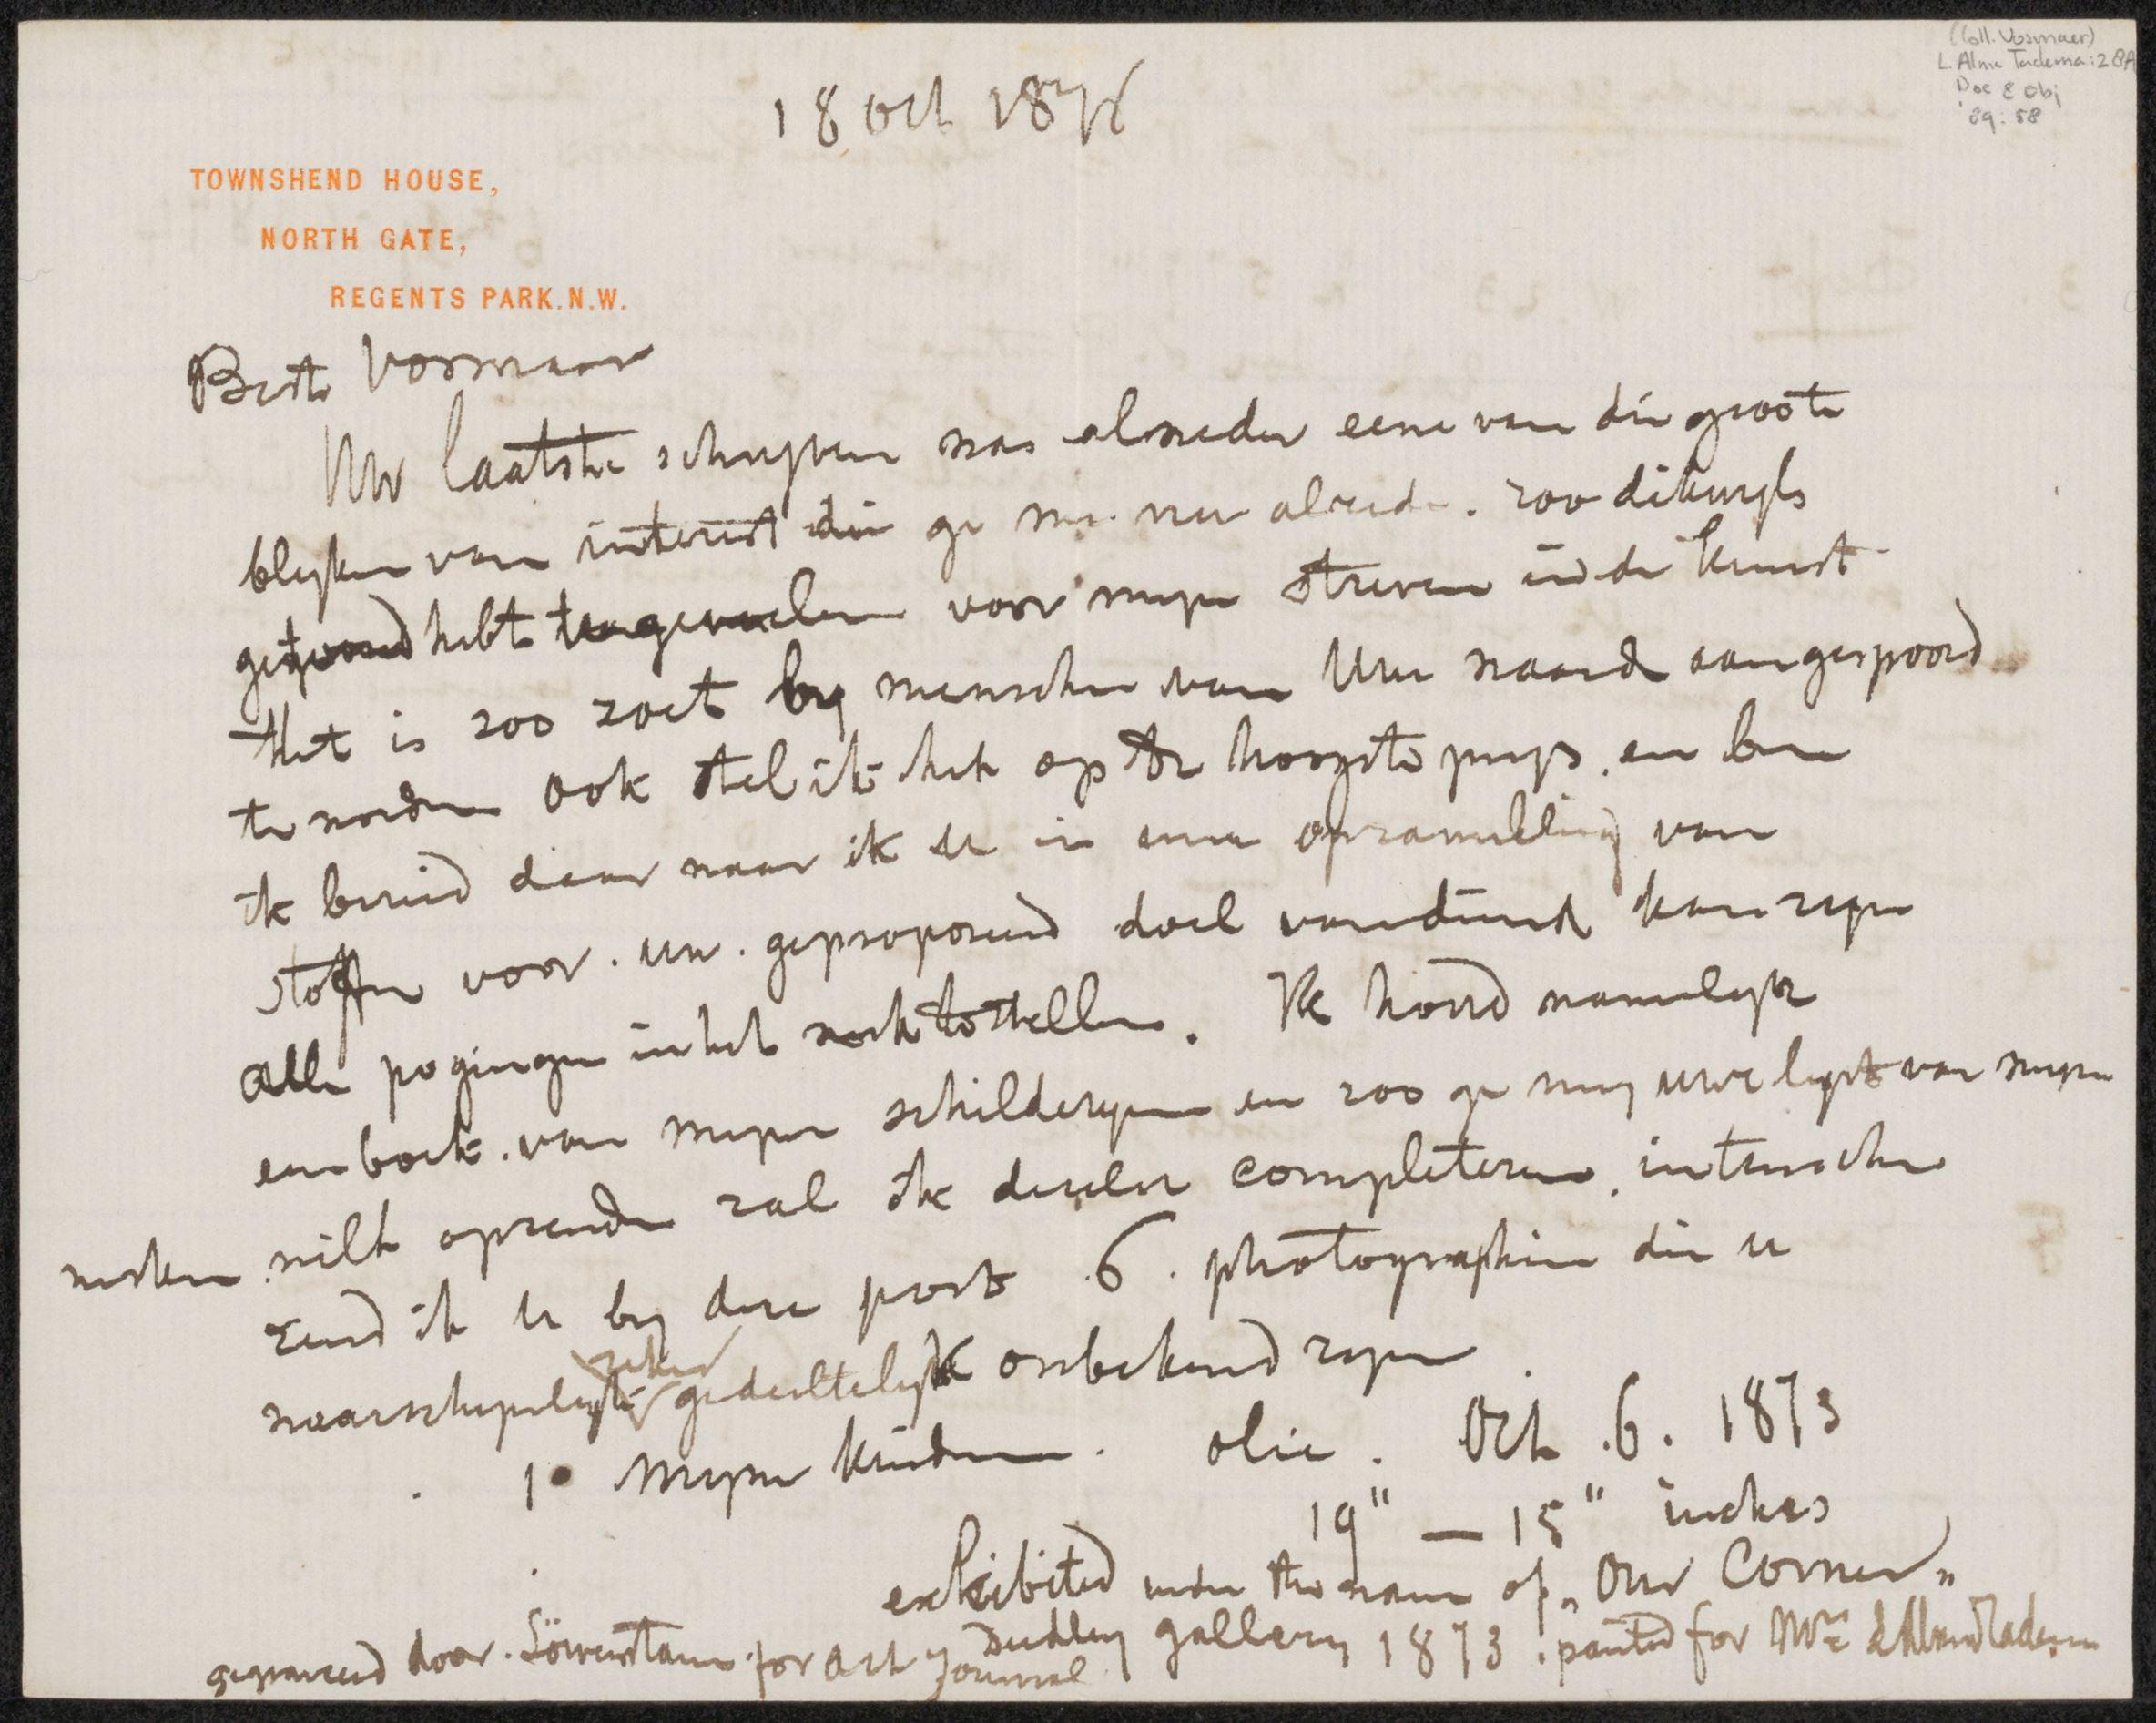 (Coll. Vosmaer)
L. Alma Tadema: 28A
Doc & Obj
'89: 58
18 Oct 1876
TOWNSHEND HOUSE,
NORTH GATE,
REGENTS PARK. N.W.
Beste Vosmaer
Uw laatste schryven was alweder eene van die groote
blyken van interest die ge me nu alreede. zoo dikwyls
hebt voor myn streven in de kunst
Het is zoo zoet by menschen van Uw waarde aangespoord
te worden ook stel ik het op de hoogste prys. en ben
ik bereid daar waar ik u in eene opzameling van
stoffen voor. uw. geproposeerd doel van dienst kan zyn
alle pogingen in het werk te stellen. Ik houd namelyk
een boek. van myne schilderyen en zoo ge my uwe lyst van myne
werken wilt opzenden zal ik dezelve completeren. intusschen
zend ik u by deze post .6. photographien die u
waarschynlyk zeker gedeeltelyk onbekend zyn
1° Myne kinderen. olie. Oct .6. 1873
19" — 15" inches
exhibited under the name of „Our Corner„
Dudley gallery 1873. painted for Mrs L Alma Tadema
gegraveerd door. Löwenstam. for Art Journal